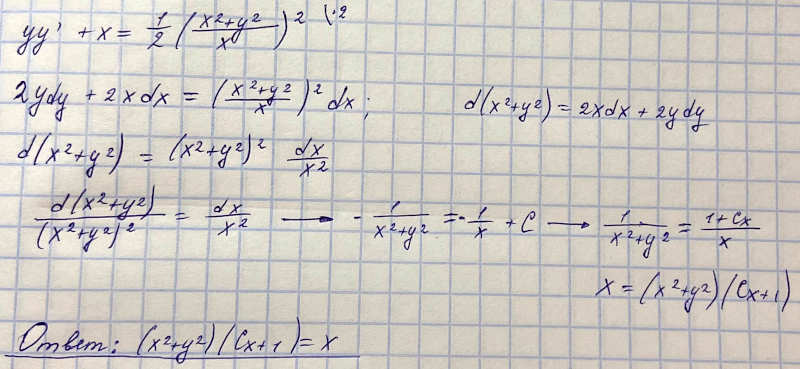 yy' + x = 1/2 ((x²+y²)/x)² |·2
2ydy + 2xdx = ((x²+y²)/x)² dx; d(x²+y²) = 2xdx + 2ydy
d(x²+y²) = (x²+y²)² dx/x²
d(x²+y²)/(x²+y²)² = dx/x² → -1/(x²+y²) = -1/x + C → 1/(x²+y²) = (1+Cx)/x
x = (x²+y²)(Cx+1)
Ответ: (x²+y²)(Cx+1) = x